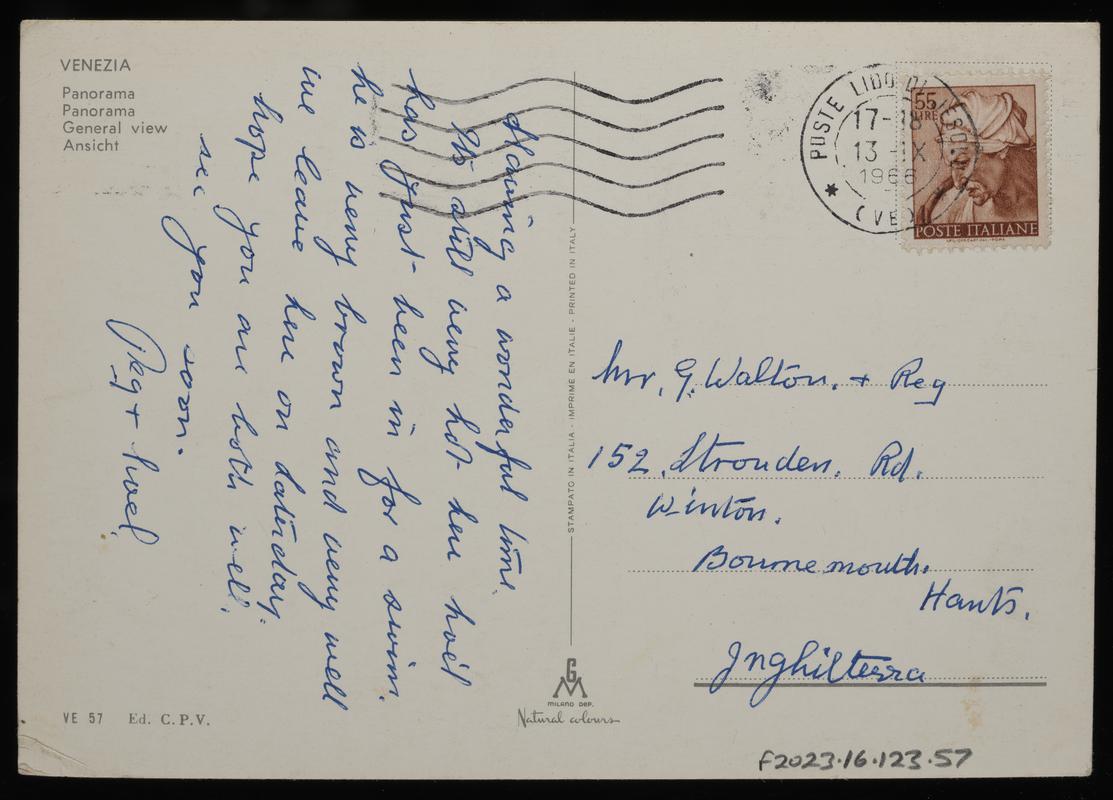 VENEZIA
Panorama
Panorama
General view
Ansicht
Having a wonderful time.
It's still very hot here Noel
has just been in for a swim.
he is very brown and very well
we leave here on Saturday.
hope you are both well.
see you soon.
Peg + Noel
VE 57 Ed. C.P.V.
STAMPATO IN ITALIA - IMPRIME EN ITALIE - PRINTED IN ITALY
MILANO DEP.
Natural colours
POSTE LIDO DI
17-18
13-IX
1966
(VE)
55
LIRE
POSTE ITALIANE
Mr. G. Walton. + Reg
152, Strouden. Rd.
Winton.
Bournemouth.
Hants.
Inghilterra
F2023.16.123.57